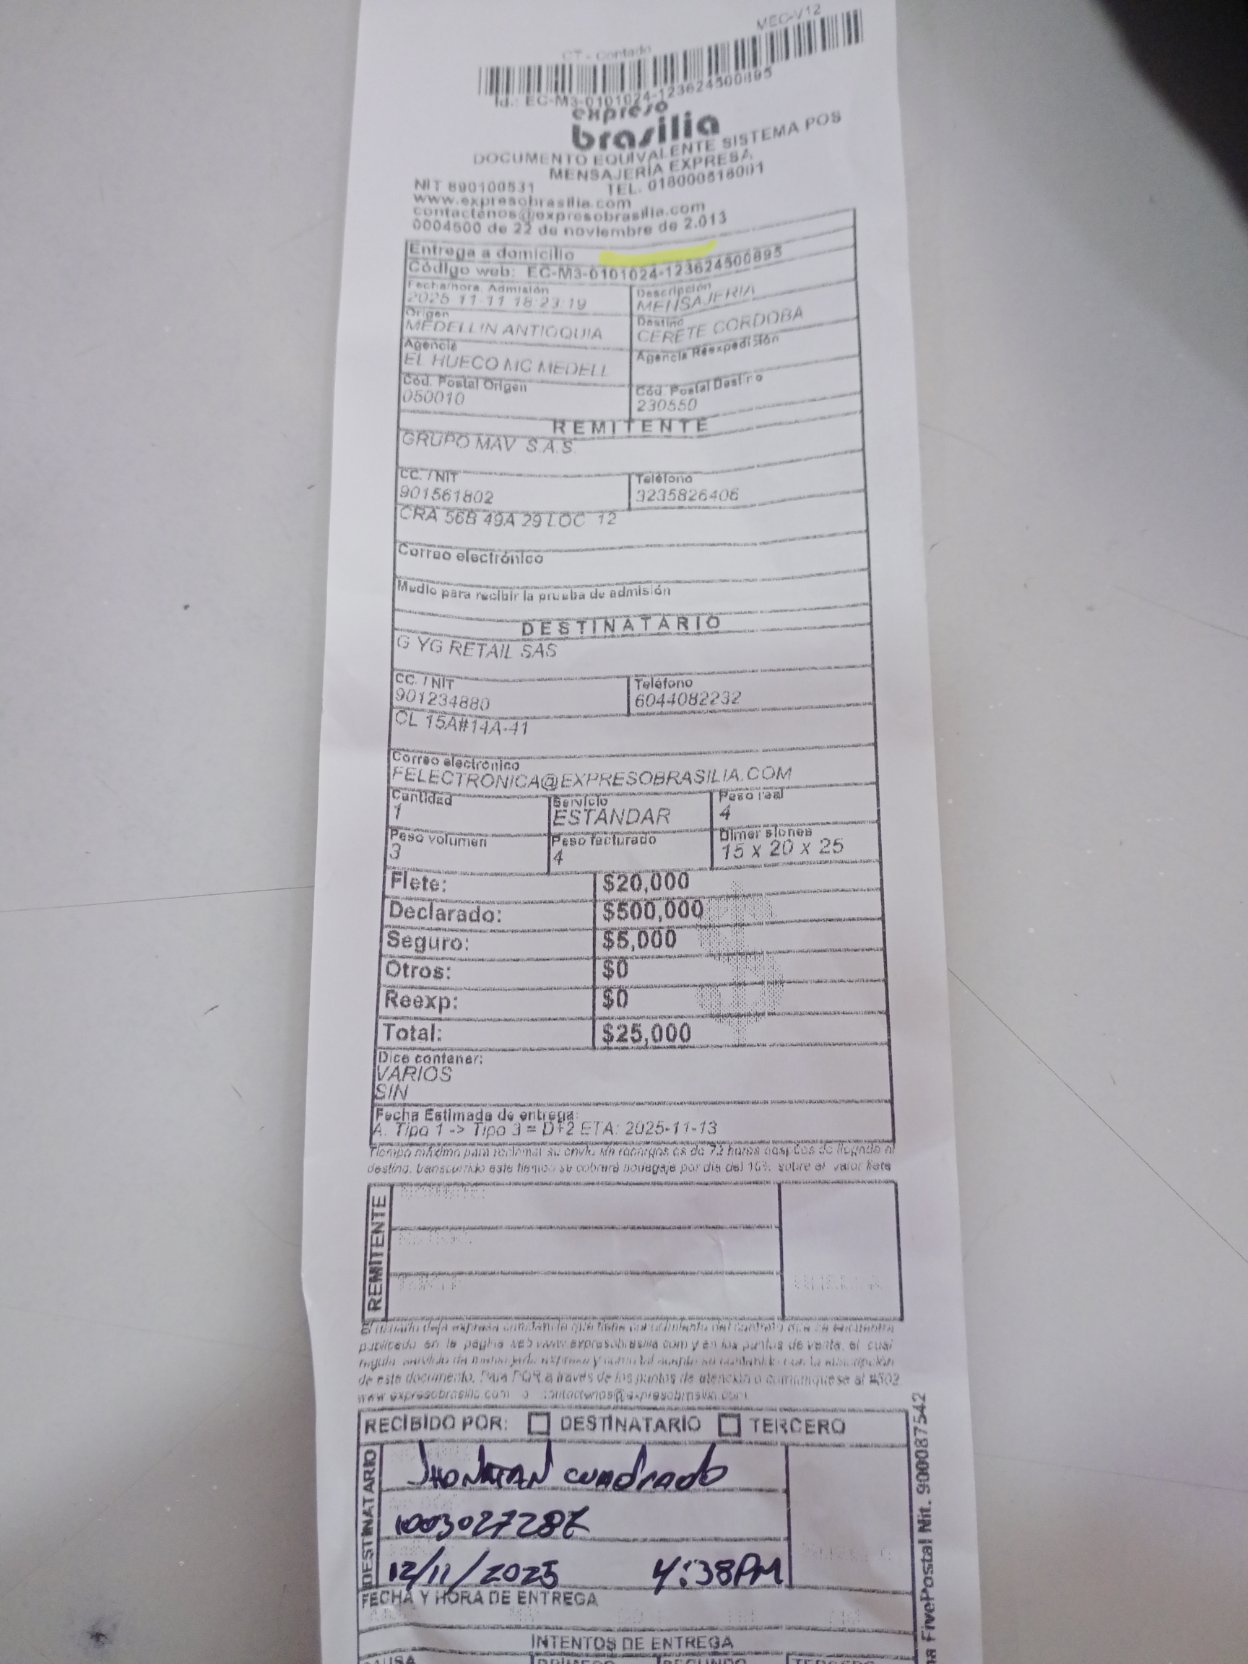 MEC-V12
CT - Contado
Id.: EC-M3-0101024-123624500895
expreso
brasilia
DOCUMENTO EQUIVALENTE SISTEMA POS
MENSAJERÍA EXPRESA
NIT 890100531 TEL. 018000518001
www.expresobrasilia.com
contactenos@expresobrasilia.com
0004500 de 22 de noviembre de 2.013
Entrega a domicilio
Código web: EC-M3-0101024-123624500895
Fecha/hora Admisión Descripción
2025-11-11 18:23:19 MENSAJERIA
Origen Destino
MEDELLIN ANTIOQUIA CERETE CORDOBA
Agencia Agencia Reexpedisión
EL HUECO MC MEDELL
Cód. Postal Origen Cód. Postal Destino
050010 230550
REMITENTE
GRUPO MAV S.A.S
CC. / NIT Teléfono
901561802 3235826406
CRA 56B 49A 29 LOC 12
Correo electrónico
Medio para recibir la prueba de admisión
DESTINATARIO
G YG RETAIL SAS
CC. / NIT Teléfono
901234880 6044082232
CL 15A#14A-41
Correo electrónico
FELECTRONICA@EXPRESOBRASILIA.COM
Cantidad Servicio Peso real
1 ESTANDAR 4
Peso volumen Peso facturado Dimensiones
3 4 15 x 20 x 25
Flete: $20,000
Declarado: $500,000
Seguro: $5,000
Otros: $0
Reexp: $0
Total: $25,000
Dice contener:
VARIOS
SIN
Fecha Estimada de entrega:
A. Tipo 1 -> Tipo 3 = D+2 ETA: 2025-11-13
Tiempo máximo para reclamar su envío sin recargos es de 72 horas después de llegado al
destino, transcurrido este tiempo se cobrará bodegaje por día del 10% sobre el valor flete
REMITENTE
publicado en la página web www.expresobrasilia.com y en los puntos de venta, el cual
de este documento. Para PQR a través de los puntos de atención o comuníquese al #502
www.expresobrasilia.com o contactenos@expresobrasilia.com
RECIBIDO POR: DESTINATARIO TERCERO
DESTINATARIO
Jhonatan cuadrado
12/11/2025 4:38PM
FECHA Y HORA DE ENTREGA
INTENTOS DE ENTREGA
CAUSA PRIMERO SEGUNDO TERCERO
FivePostal Nit. 900087542